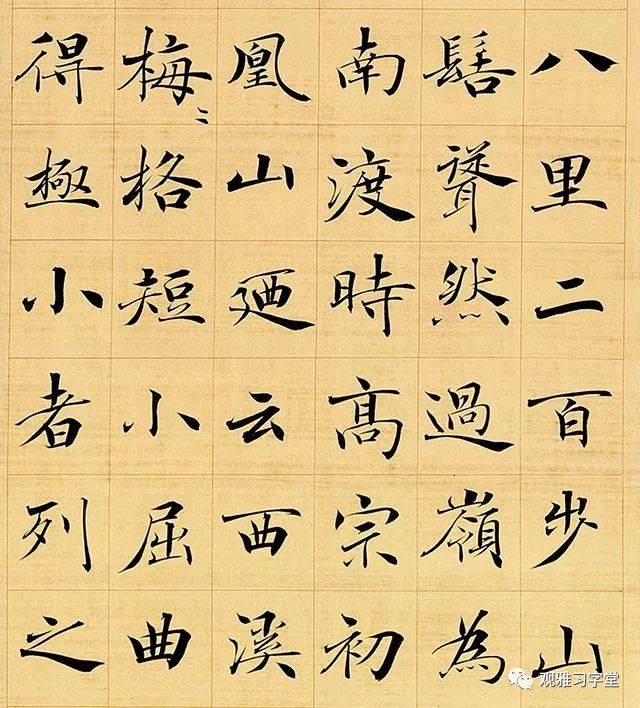 八里二百步山
髻聳然過嶺為
南渡時髙宗初
凰山廼云西溪
梅〻格短小屈曲
得極小者列之
观雅习字堂